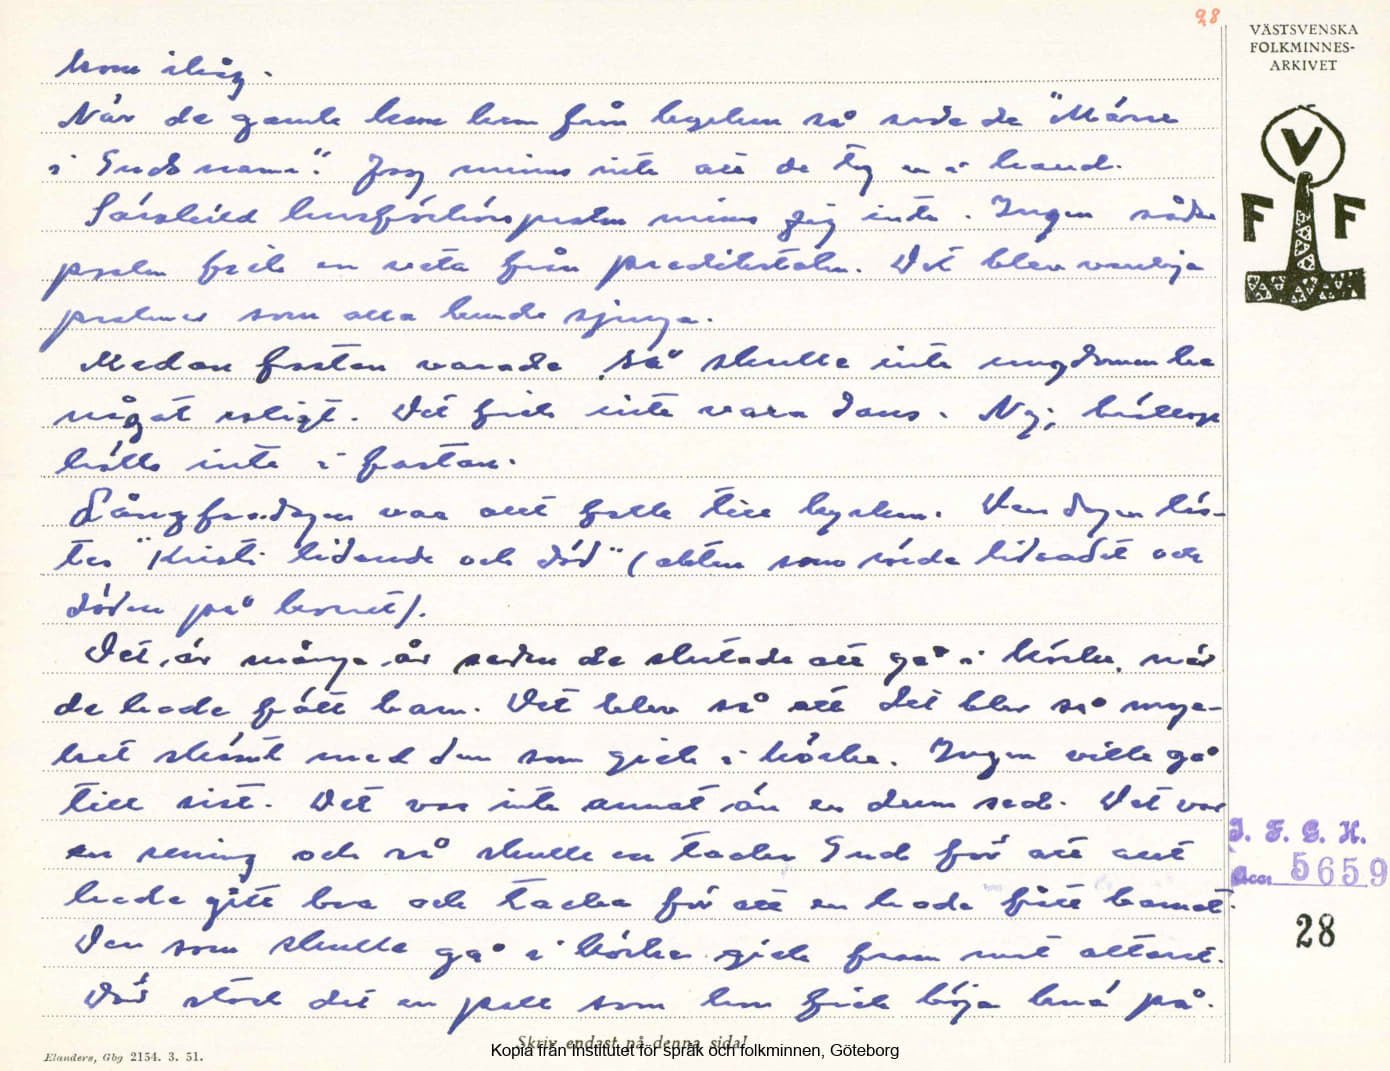 28
VÄSTSVENSKA
FOLKMINNES-
ARKIVET
V
F F
kom ihåg.
När de gamle kom hem från kyrkan så sade de "Märre
i Guds namn". Jag minns inte att de tog en i hand.
Särskild husförhörspsalm minns jag inte. Ingen såda
psalm fick en veta från predikstolen. Det blev vanliga
psalmer som alla kunde sjunga.
Medan fastan varade så skulle inte ungdomen ha
något roligt. Det fick inte vara dans. Nej, bröllop
hölls inte i fastan.
Långfredagen var allt folk till kyrkan. Den dagen läs-
tes "Kristi lidande och död" (akten som rörde lidandet och
döden på korset).
Det är många år sedan de slutade att gå i körka, när
de hade fått barn. Det blev så att det blev så myc-
ket skämt med den som gick i körka. Ingen ville gå
till sist. Det var inte annat än en dum sed. Det var
en mening och så skulle en tacka Gud för att allt
hade gått bra och tacka för att en hade fått barnet.
Den som skulle gå i körka gick fram mot altaret.
Där stod det en pall som hon fick böja knä på.
I. F. G. H.
Acc. 5659
28
Skriv endast på denna sida!
Elanders, Gbg 2154. 3. 51.
Kopia från Institutet för språk och folkminnen, Göteborg